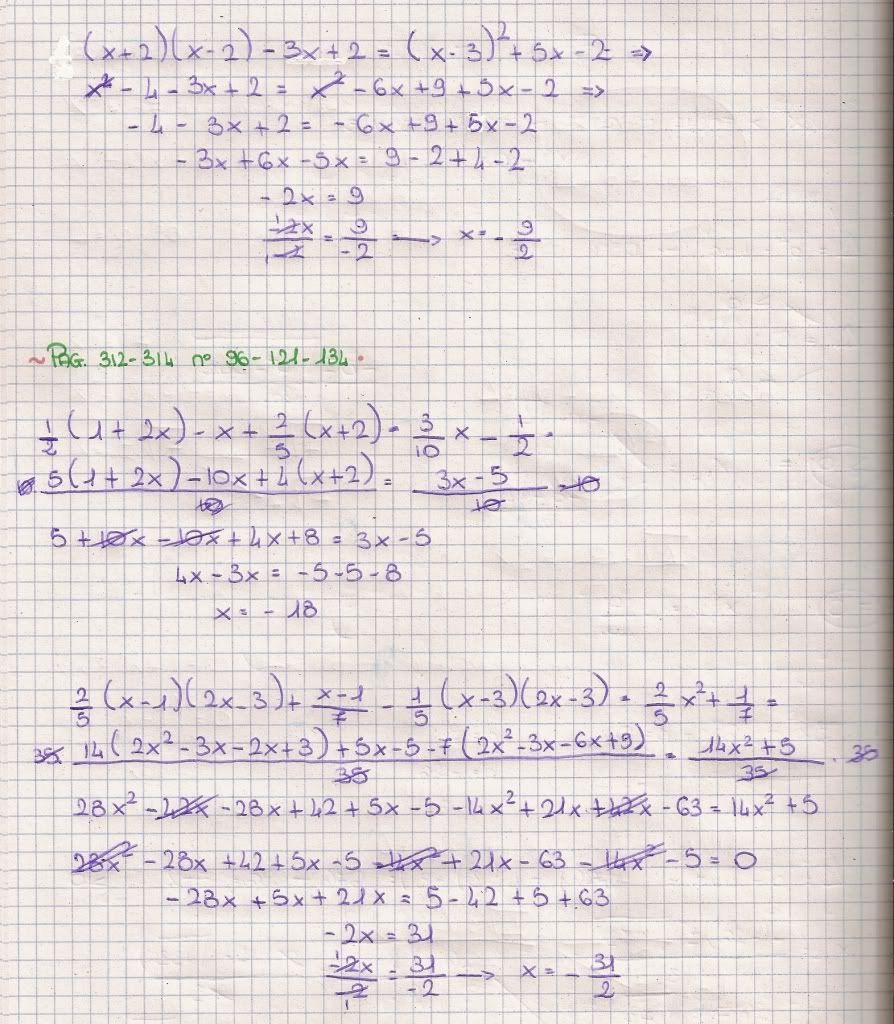 (x+2)(x-2) - 3x+2 = (x-3)² + 5x - 2 =>
x² - 4 - 3x + 2 = x² - 6x + 9 + 5x - 2 =>
- 4 - 3x + 2 = - 6x + 9 + 5x - 2
- 3x + 6x - 5x = 9 - 2 + 4 - 2
- 2x = 9
-2x/-2 = 9/-2 → x = - 9/2
~ PAG. 312-314 n° 96-121-134.
1/2 (1 + 2x) - x + 2/5 (x+2) = 3/10 x - 1/2 =
10. 5(1 + 2x) - 10x + 4(x+2)/10 = 3x - 5/10 · 10
5 + 10x - 10x + 4x + 8 = 3x - 5
4x - 3x = -5 - 5 - 8
x = - 18
2/5 (x-1)(2x-3) + x-1/7 - 1/5 (x-3)(2x-3) = 2/5 x² + 1/7 =
35. 14(2x² - 3x - 2x + 3) + 5x - 5 - 7(2x² - 3x - 6x + 9)/35 = 14x² + 5/35 · 35
28x² - 42x - 28x + 42 + 5x - 5 - 14x² + 21x + 42x - 63 = 14x² + 5
28x² - 28x + 42 + 5x - 5 - 14x² + 21x - 63 - 14x² - 5 = 0
- 28x + 5x + 21x = 5 - 42 + 5 + 63
- 2x = 31
-2x/-2 = 31/-2 → x = - 31/2